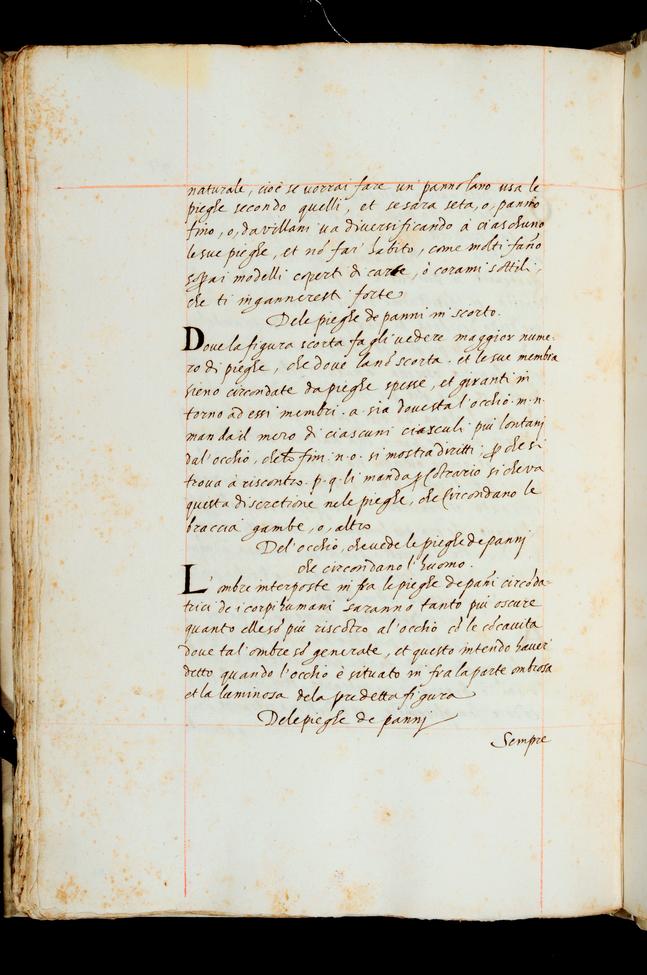 naturale, cioè se vorrai fare un panno lano usa le
pieghe secondo quelli, et se sara seta, o, panno
fino, o, da villani va diversificando à ciaschuno
le sue pieghe, et nõ far habito, come molti fãno
sopra i modelli coperti di carte, ò corami sottili,
che ti inganneresti forte
Dele pieghe de panni in scorto.
Dove la figura scorta fa gli vedere maggior nume-
ro di pieghe, che dove la nõ scorta. et le sue membra
sieno circondate da pieghe spesse, et giranti in
torno ad essi membri. a. sia dove sta l'occhio. m. n.
manda il mezo di ciascuni ciasculi piu lontani
dal'occhio, de lo fini. n. o. si mostra dritti. p che si
trova à riscontro. p. q. li manda p cõtrario si che va
questa discretione nele pieghe, che circondano le
braccia gambe, o, altro
Del'occhio, che vede le pieghe de panni
che circondano l'huomo.
L'ombre interposte in fra le pieghe de pañi circõda-
trici de i corpi humani saranno tanto piu oscure
quanto elle sõ piu riscõtro al'occhio cõ le cõcavita
dove tal'ombre sõ generate, et questo intendo haver
detto quando l'occhio è situato in fra la parte ombrosa
et la luminosa dela predetta figura
Dele pieghe de panni
Sempre